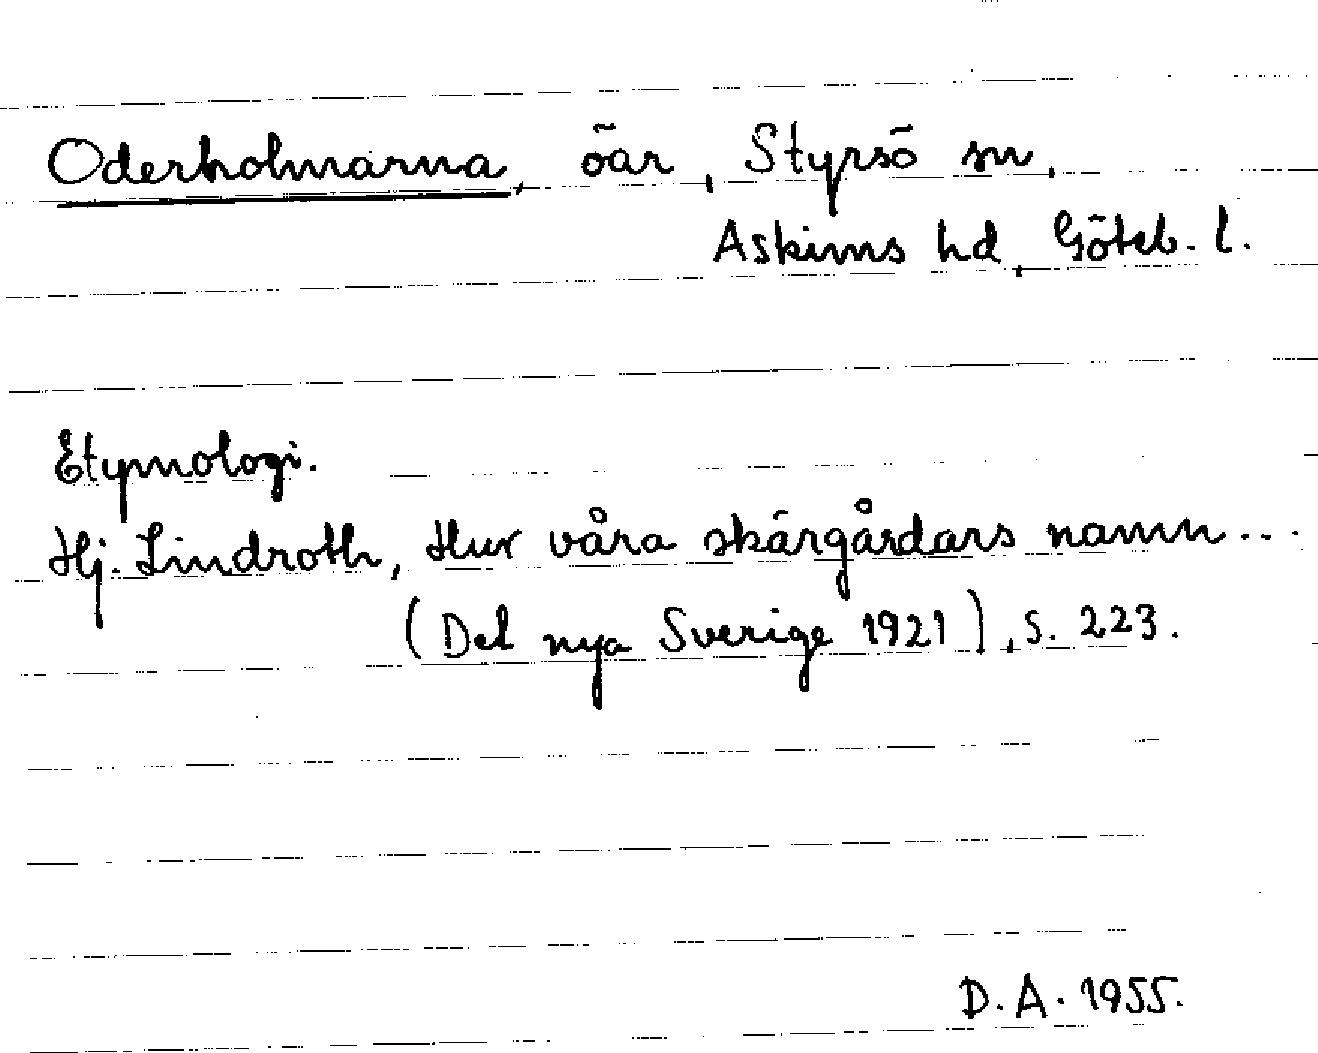 Oderholmarna, öar, Styrsö sn,
Askims hd, Göteb. l.
Etymologi.
Hj. Lindroth, Hur våra skärgårdars namn...
(Det nya Sverige 1921), s. 223.
D. A. 1955.